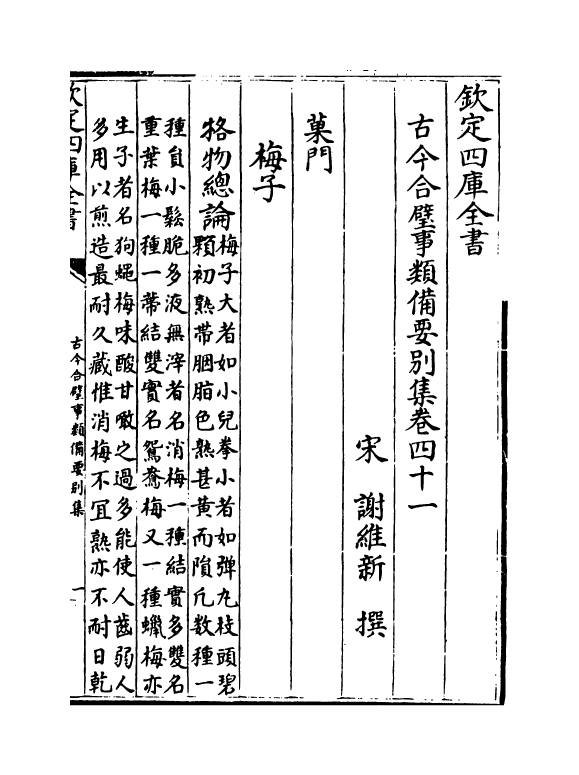 欽定四庫全書
古今合璧事類備要別集卷四十一
宋 謝維新 撰
菓門
梅子
格物總論
梅子大者如小兒拳小者如弹丸枝頭碧
顆初熟帶胭脂色熟甚黄而隕凡数種一
種貟小鬆脆多液無滓者名消梅一種結實多雙名
重葉梅一種一蒂結雙實名鴛鴦梅又一種蠟梅亦
生子者名狗蠅梅味酸甘噉之過多能使人齒弱人
多用以煎造最耐久藏惟消梅不冝熟亦不耐日乾
欽定四庫全書
古今合璧事類備要别集
一